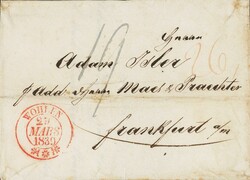 Herrn
Adam Isler
p add. Herren Mack & Praechter
frankfurt a/m
WOHLEN
29
MARS
1839